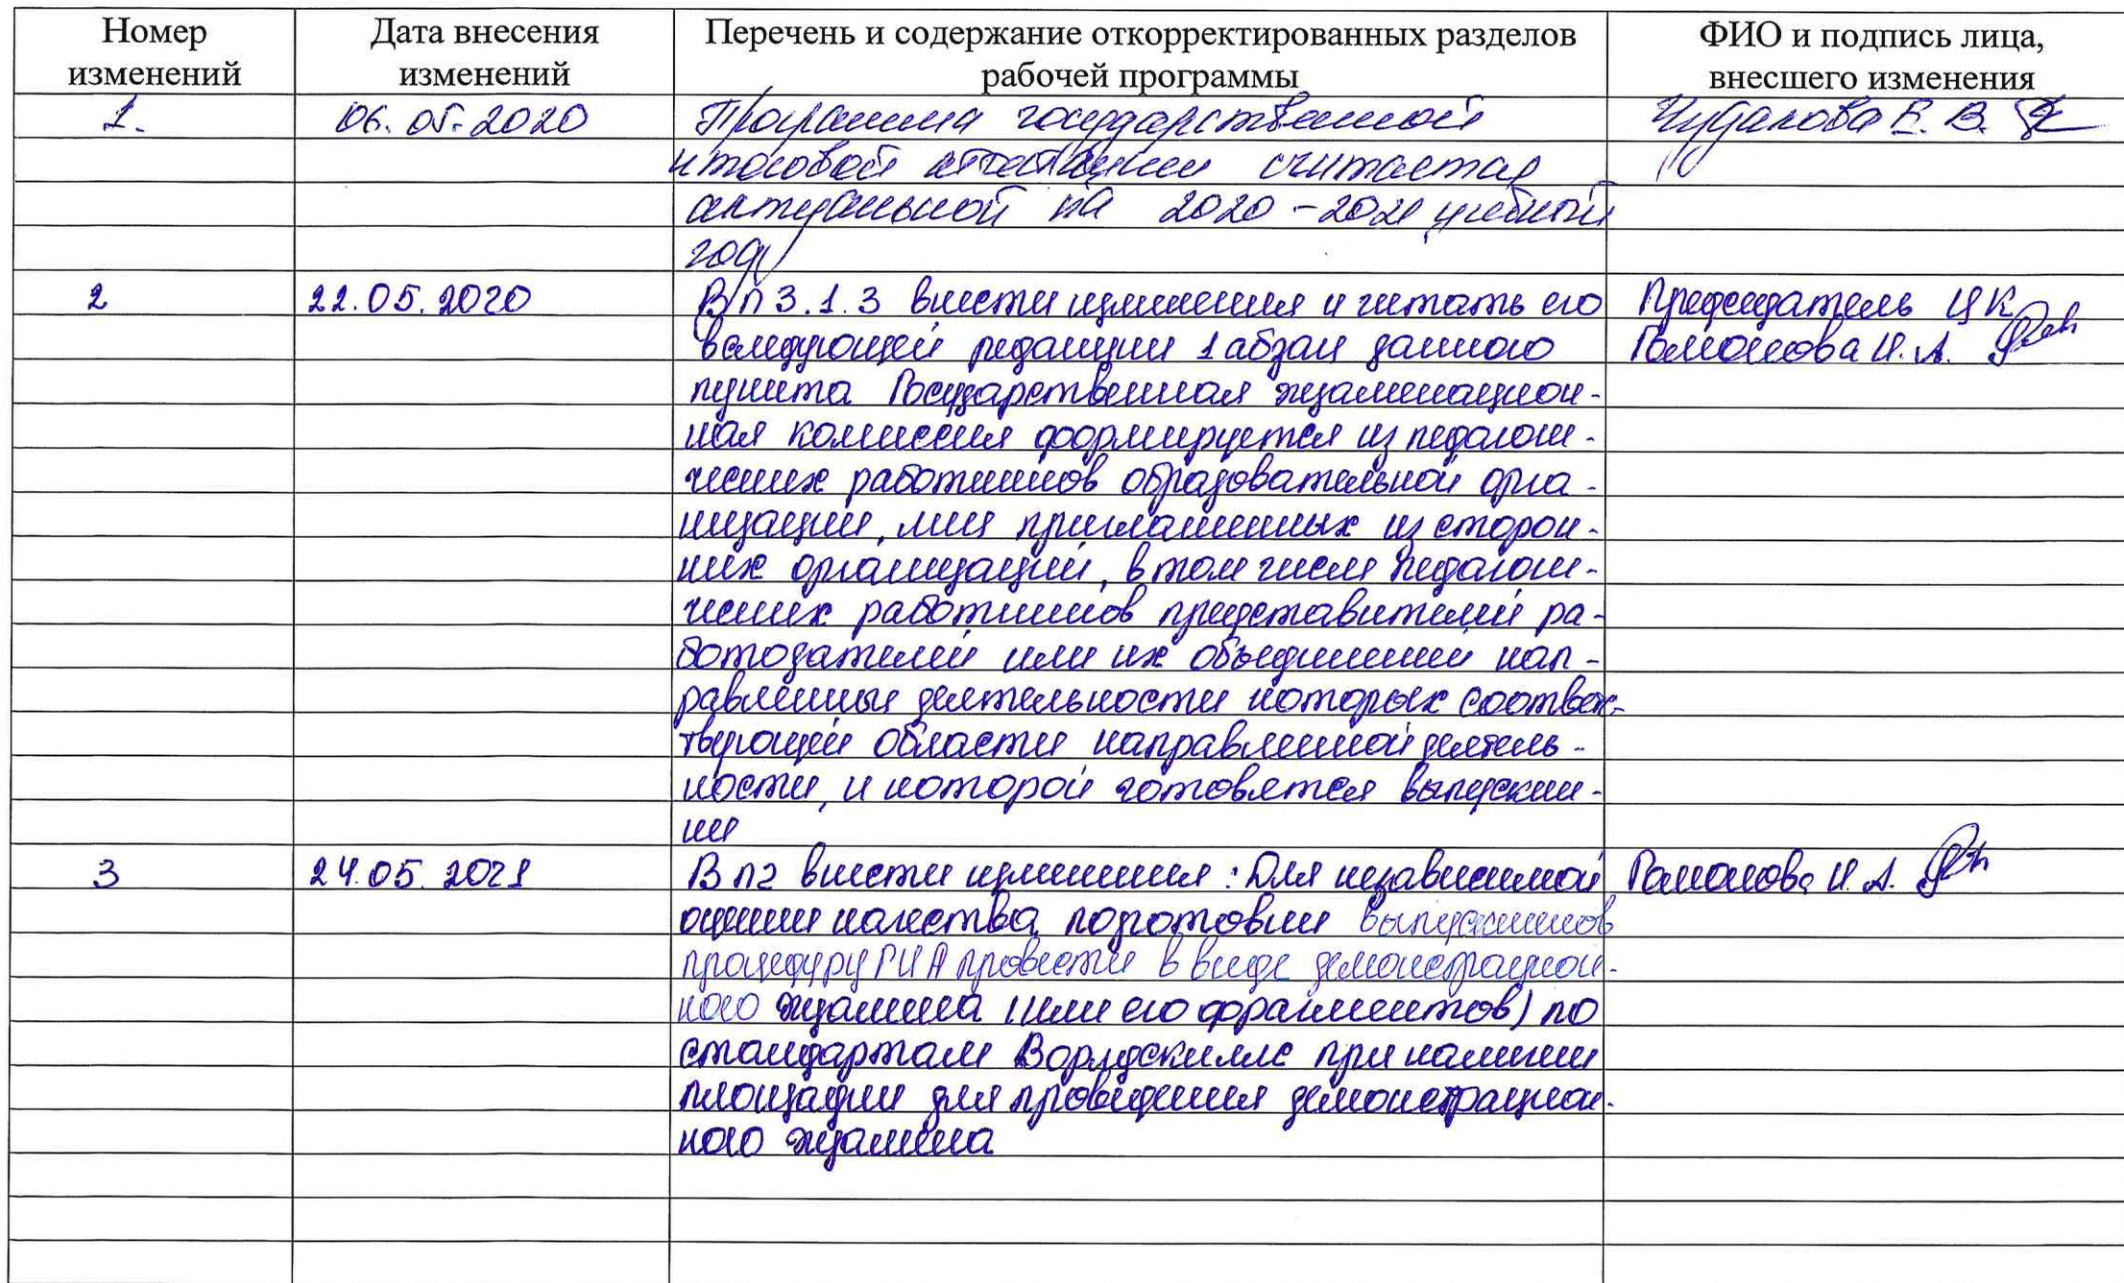 Номер изменений
Дата внесения изменений
Перечень и содержание откорректированных разделов рабочей программы
ФИО и подпись лица, внесшего изменения
1. 06.05.2020 Программа государственной Чудакова Е. В.
итоговой аттестации считается
актуальной на 2020-2021 учебный
год
2 22.05.2020 В п 3.1.3 внести изменения и читать его Председатель ЦК
в следующей редакции 1 абзац данного И. А.
пункта Государственная экзаменацион-
ная комиссия формируется из педагоги-
ческих работников образовательной орга-
низации, лиц приглашенных из сторон-
них организаций, в том числе педагоги-
ческих работников представителей ра-
ботодателей или их объединений нап-
равленных деятельности которых соответс-
твующей области направленной деятель-
ности, к которой готовятся выпускни-
ки
3 24.05.2021 В п2 внести изменения: Для независимой И. А.
оценки качества подготовки выпускников
процедуру ГИА провести в виде демонстрацион-
ного экзамена (или его фрагментов) по
стандартам Ворлдскиллс при наличии
площадки для проведения демонстрацион-
ного экзамена